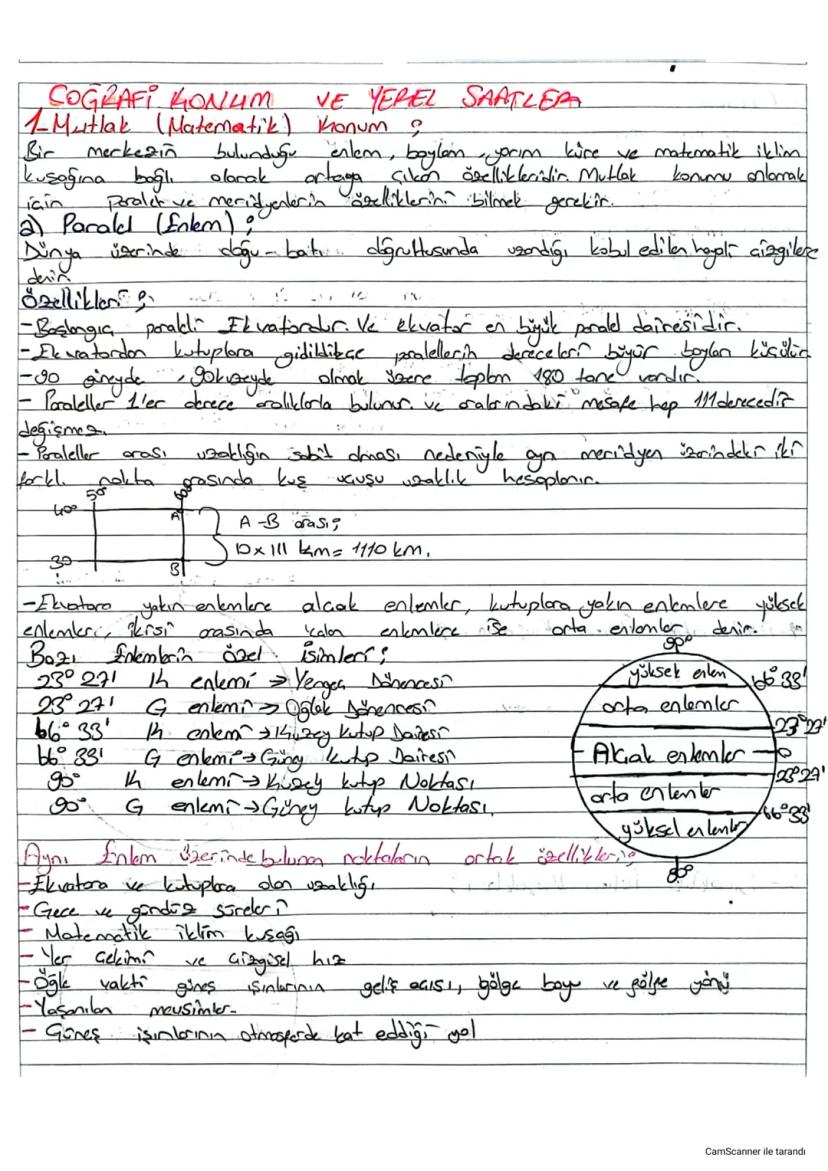 COĞRAFİ KONUM VE YEREL SAATLER
1-Mutlak (Matematik) Konum ;
Bir merkezin bulunduğu enlem, boylam, yarım küre ve matematik iklim
kuşağına bağlı olarak ortaya çıkan özellikleridir. Mutlak konumu anlamak
için paralel ve meridyenlerin özelliklerini bilmek gerekir.
a) Paralel (Enlem) ;
Dünya üzerinde doğu-batı doğrultusunda uzandığı kabul edilen hayali çizgilere
denir.
Özellikleri ;
-Başlangıç paraleli Ekvatordur. Ve ekvator en büyük paralel dairesidir.
-Ekvatordan kutuplara gidildikçe paralellerin dereceleri büyür boyları küçülür.
-90 güneyde, 90 kuzeyde olmak üzere toplam 180 tane vardır.
- Paraleller 1'er derece aralıklarla bulunur. ve aralarındaki mesafe hep 111 derecedir
değişmez.
-Paraleller arası uzaklığın sabit olması nedeniyle aynı meridyen üzerindeki iki
farklı nokta arasında kuş uçuşu uzaklık hesaplanır.
5° 60°
40° A
A-B arası;
10 x 111 km = 1110 km.
30 B
-Ekvatora yakın enlemlere alçak enlemler, kutuplara yakın enlemlere yüksek
enlemler, ikisi arasında kalan enlemlere ise orta enlemler denir.
Bazı Enlemlerin özel isimleri;
23° 27' K enlemi → Yengeç Dönencesi
23° 27' G enlemi → Oğlak Dönencesi
66° 33' K enlemi → Kuzey Kutup Dairesi
66° 33' G enlemi → Güney kutup Dairesi
90° K enlemi → Kuzey kutup Noktası
90° G enlemi → Güney kutup Noktası.
90°
yüksek enlem 66° 33'
orta enlemler
23° 27'
Alçak enlemler 0
23° 27'
orta enlemler
66° 33'
yüksek enlemler
90°
Aynı Enlem üzerinde bulunan noktaların ortak özellikleri;
-Ekvatora ve kutuplara olan uzaklığı
-Gece ve gündüz süreleri
- Matematik iklim kuşağı
-Yer çekimi ve çizgisel hız
-Öğle vakti güneş ışınlarının geliş açısı, gölge boyu ve gölge yönü
-Yaşanılan mevsimler-
- Güneş ışınlarının atmosferde kat eddiği yol
CamScanner ile tarandı